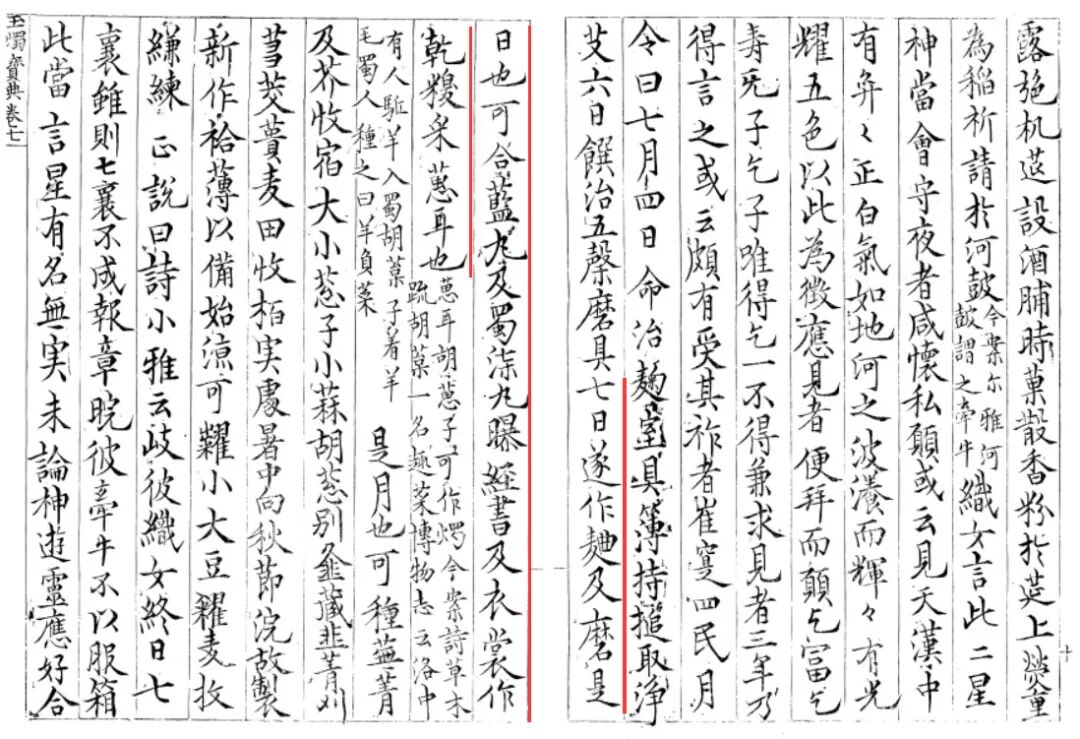 露施机筵設酒脯時菓散香粉於筵上熒重
為稲祈請於河鼓今案尔雅河鼓謂之牽牛織女言此二星
神當會守夜者咸懐私願或云見天漢中
有弈々正白氣如地河之波瀁而輝々有光
耀五色以此為徴應見者便拜而願乞富乞
寿旡子乞子唯得乞一不得兼求見者三年乃
得言之或云頗有受其祚者崔寔四民月
令曰七月四日命治麹室具簿持搥取浄
艾六日饌治五榖磨具七日遂作麹及磨是
日也可合藍丸及蜀柒丸曝経書及衣裳作
乾糗采葸耳也葸耳胡葸子可作燭今案詩草木疏胡葈一名趣菜博物志云洛中
有人駈羊入蜀胡葈子着羊毛蜀人種之曰羊負菜是月也可種蕪菁
及芥收宿大小葱子小蒜胡葱别韭藏韭菁刈
芻茭蕢麦田收栢実處暑中向秋節浣故製
新作袷薄以備始涼可糶小大豆糴麦收
縑練正說曰詩小雅云歧彼織女終日七
襄雖則七襄不成報章晥彼牽牛不以服箱
此當言星有名無実未論神遊靈應好合
玉燭寶典卷七
十